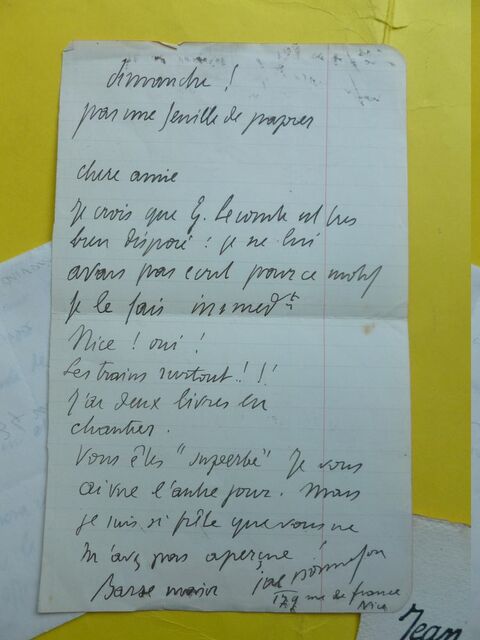 dimanche !
pas une feuille de papier
chere amie
Je crois que G. Lecomte est tres
bien disposé : je ne lui
avais pas ecrit pour ce motif
je le fais immedt
Nice ! oui !
Les trains surtout !! !
J'ai deux livres en
chantier.
Vous êtes "superbe" Je vous
ai vue l'autre jour. Mais
je suis si frêle que vous ne
m'avez pas aperçue !
Baise main
129 rue de france
Nice
Jean